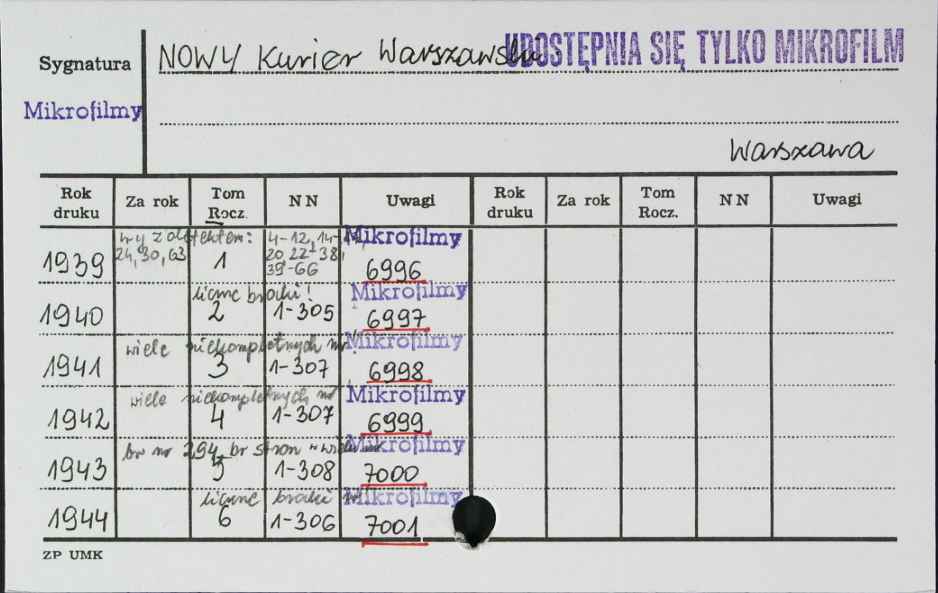 Sygnatura
NOWY Kurier Warszawski
UDOSTĘPNIA SIĘ TYLKO MIKROFILM
Mikrofilmy
Warszawa
Rok druku Za rok Tom Rocz. NN Uwagi Rok druku Za rok Tom Rocz. NN Uwagi
24, 30, 63 4-12, 14- Mikrofilmy
20 22-38,
1939 1 39-66 6996
liczne braki! Mikrofilmy
1940 2 1-305 6997
wiele niekompletnych nr! Mikrofilmy
1941 3 1-307 6998
wiele niekompletnych nr Mikrofilmy
1942 4 1-307 6999
br nr 294, br stron w wielu Mikrofilmy
1943 5 1-308 7000
liczne braki Mikrofilmy
1944 6 1-306 7001
ZP UMK